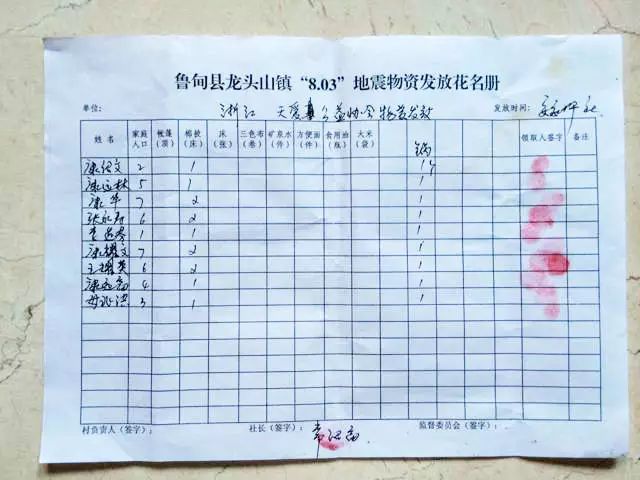 鲁甸县龙头山镇“8.03”地震物资发放花名册
单位： 浙江 天爱 公益协会物资发放 发放时间：
姓名 家庭人口 帐篷（顶） 棉被（床） 床（张） 三色布（卷） 矿泉水（件） 方便面（件） 食用油（瓶） 大米（袋） 锅 领取人签字 备注
康绍文 2 1 1个
康远林 5 1 1
康华 7 2 1
张永寿 6 2 1
1 1 1
康耀文 7 2 1
王耀英 6 2 1
康 4 1 1
3 1 1
村负责人（签字）： 社长（签字）： 监督委员会（签字）：